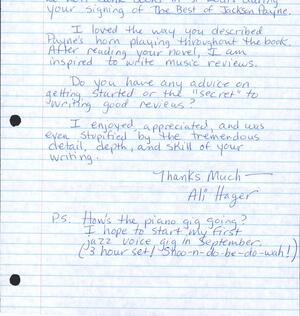 your signing of The Best of Jackson Payne.
I loved the way you described
Payne's horn playing throughout the book.
After reading your novel, I am
inspired to write music reviews.
Do you have any advice on
getting started or the "secret" to
writing good reviews?
I enjoyed, appreciated, and was
even stupified by the tremendous
detail, depth, and skill of your
writing.
Thanks Much—
Ali Hager
P.S. How's the piano gig going?
I hope to start my first
jazz voice gig in September.
(3 hour set! Shoo-n-do-be-do-wah!)